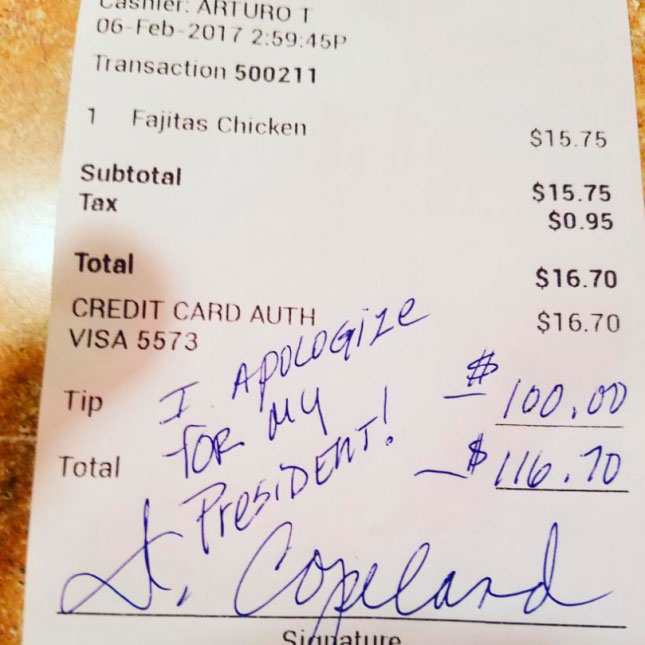 Cashier: ARTURO T
06-Feb-2017 2:59:45P
Transaction 500211
1 Fajitas Chicken $15.75
Subtotal $15.75
Tax $0.95
Total $16.70
CREDIT CARD AUTH $16.70
VISA 5573
Tip $100.00
Total $116.70
I APOLOGIZE
FOR MY
PRESIDENT!
J. Copeland
Signature